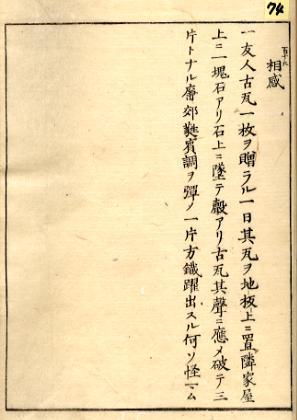 74
百十六
相感
一友人古瓦一枚ヲ贈ラル一日其瓦ヲ地板上ニ置隣家屋
上ニ一塊石アリ石上ニ墜テ聲アリ古瓦其聲ニ應メ破テ三
片トナル廉郊蕤賓調ヲ彈ノ一片方鐵躍出スル何ソ怪マム